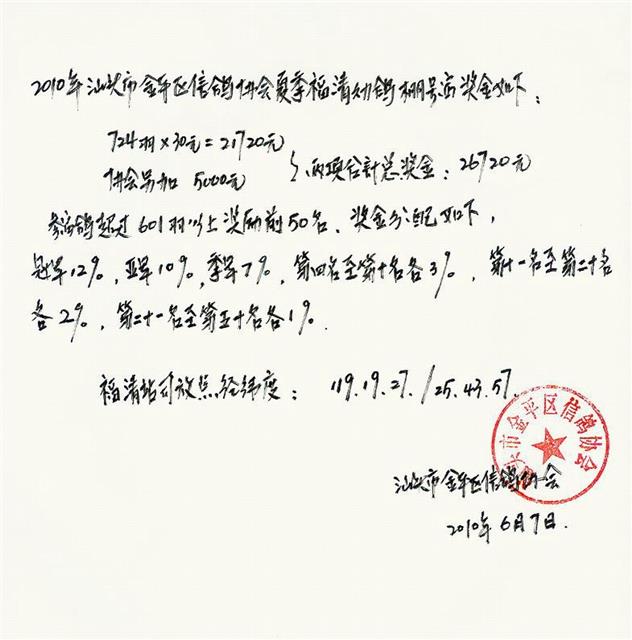 2010年汕头市金平区信鸽协会夏季福清幼鸽棚号赛奖金如下:
724羽×30元=21720元
协会另加 5000元
}两项合计总奖金:26720元
参赛鸽超过601羽以上奖励前50名、奖金分配如下,
冠军12%,亚军10%,季军7%,第四名至第十名各3%,第十一名至第二十名
各2%,第二十一名至第五十名各1%.
福清站司放点经纬度: 119.19.27./25.43.57.
汕头市金平区信鸽协会
汕头市金平区信鸽协会
2010年6月7日.